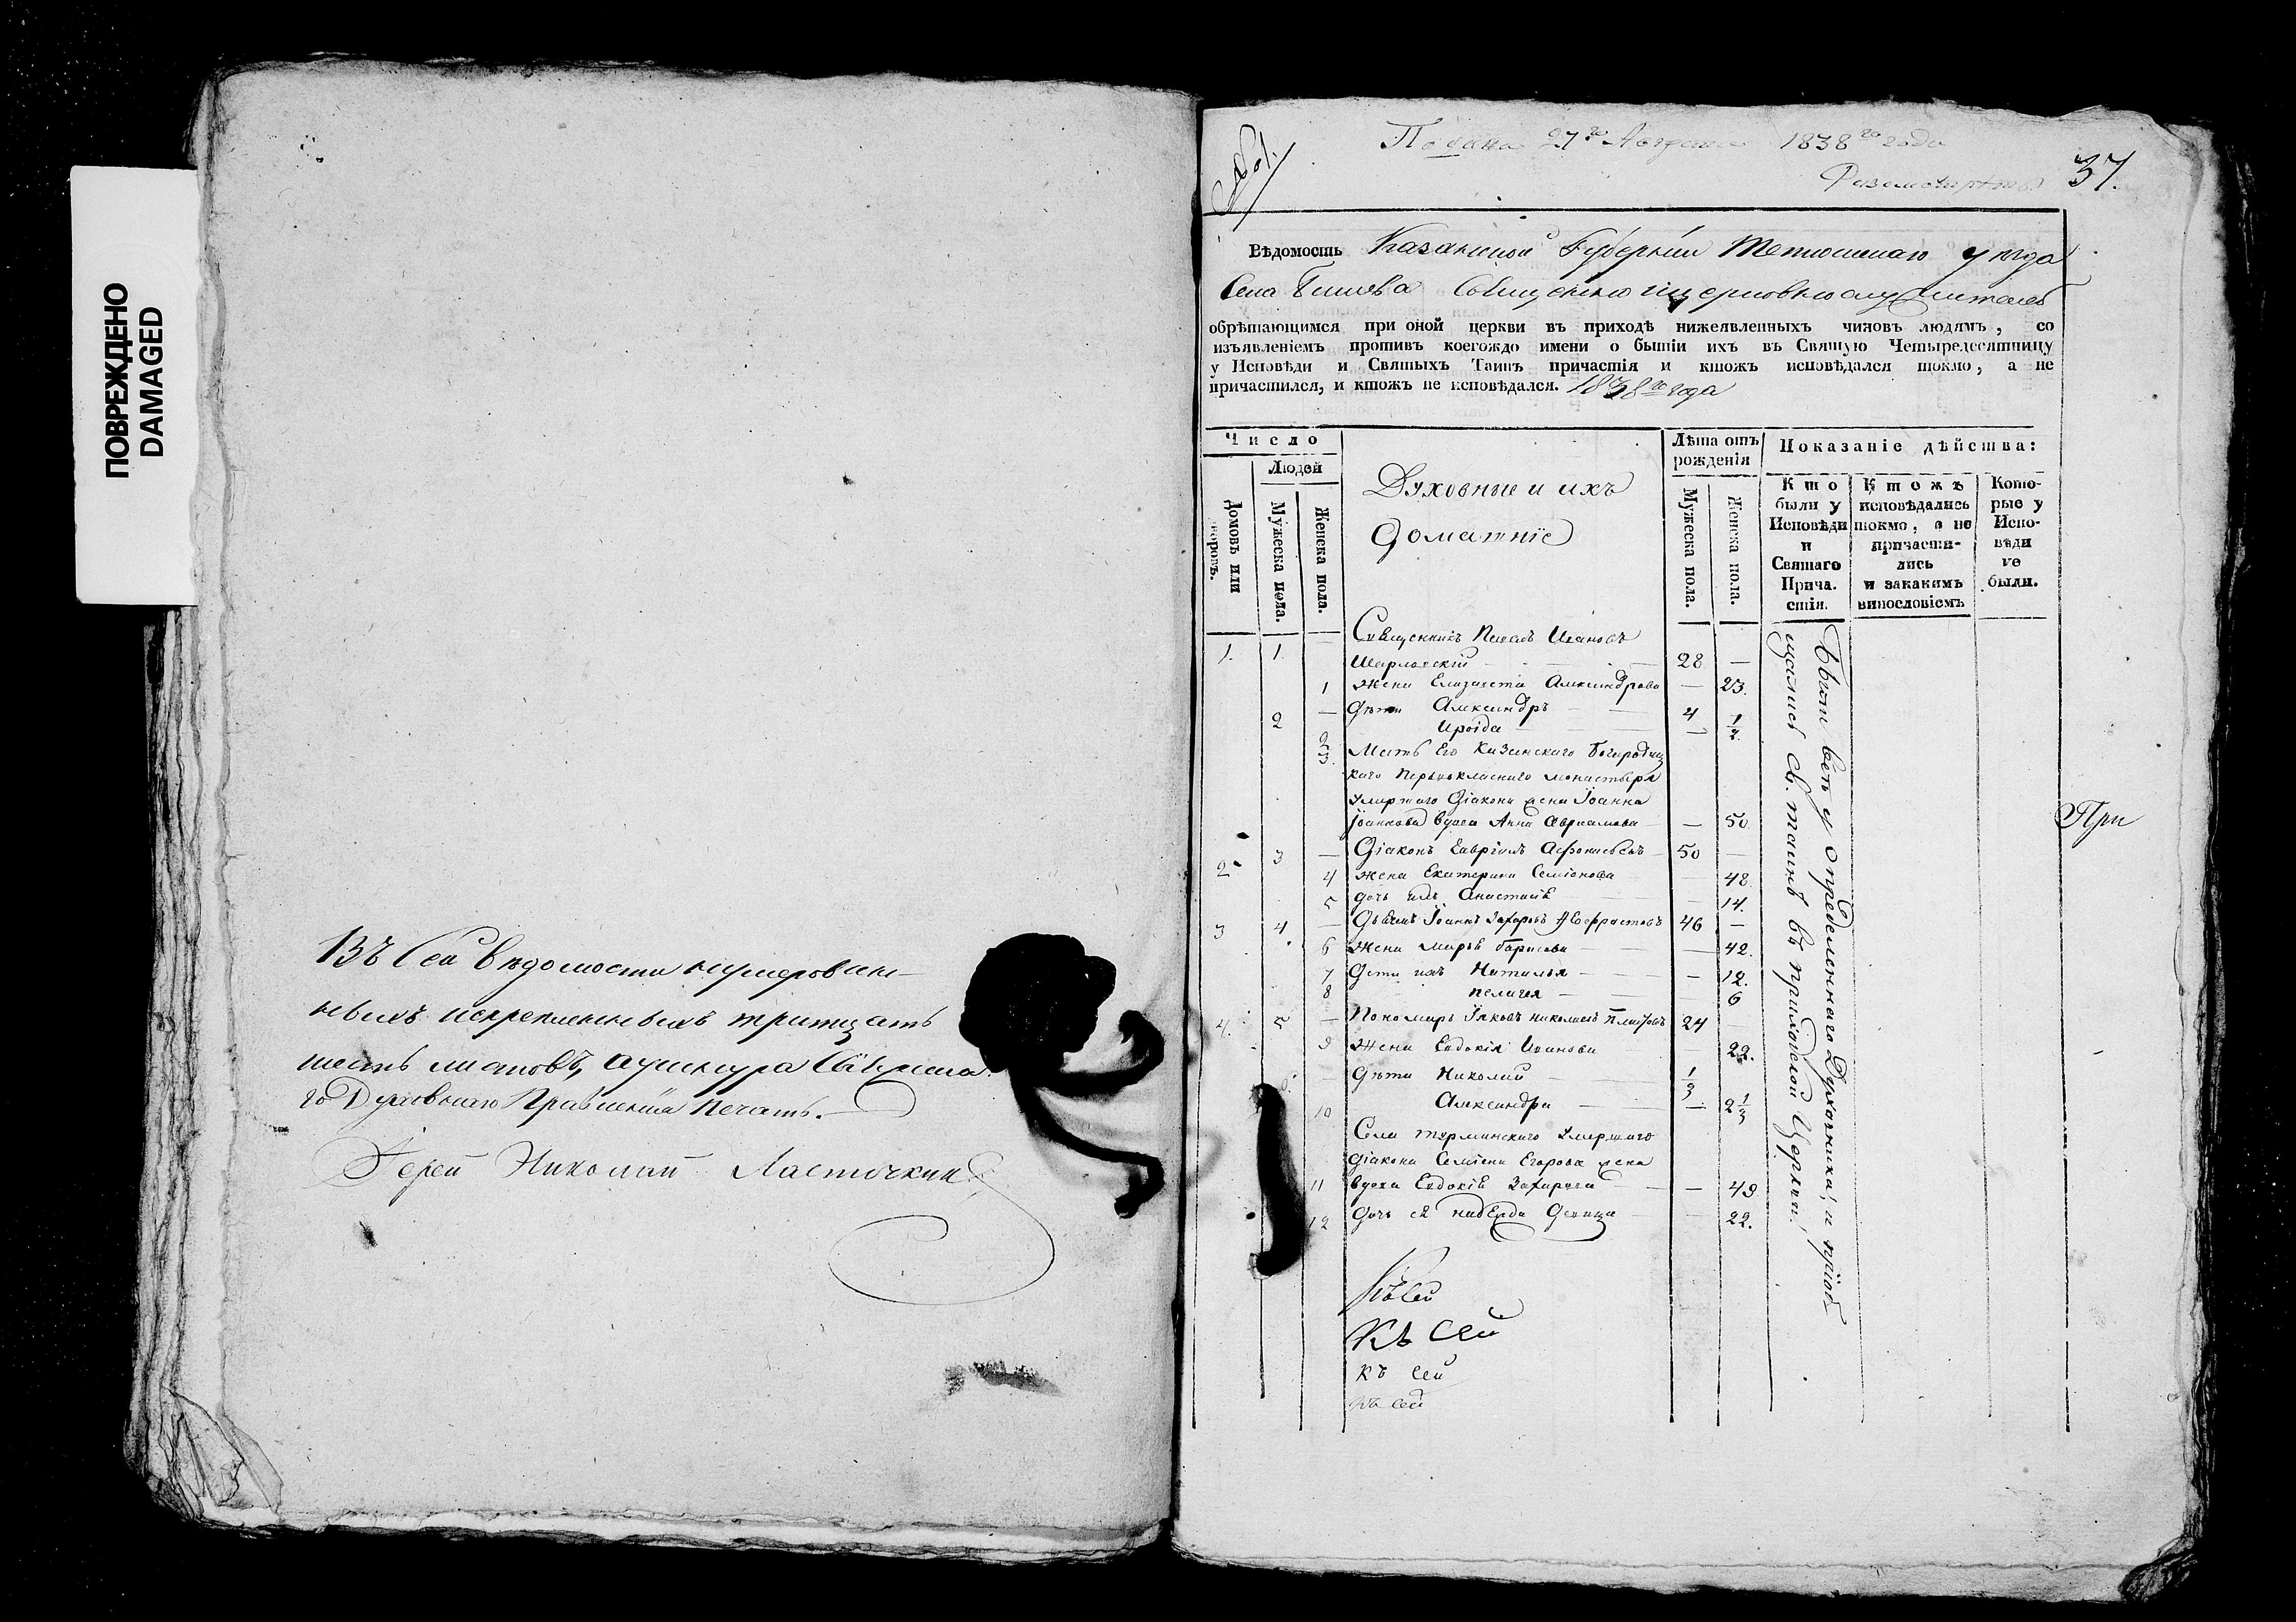 ПОВРЕЖДЕНО
DAMAGED
Въ Сей Ведомости нумерован-
ныхъ искрепленныхъ тритцать
шесть листовъ, аушнура
го Духовнаго Правления печать.
Іерей Николай Ласточкин
Подана 27го Августа 1838го года
37.
Вѣдомость Казанской Губерніи Тетюшскаго уѣзда
Села Священно и церковнослужителей
обрѣтающимся при оной церкви въ приходѣ нижеявленныхъ чиновъ людямъ, со
изъявленіемъ противъ коегождо имени о бытіи ихъ въ Святую Четыредесятницу
у Исповѣди и Святыхъ Таинъ причастія и ктожъ исповѣдался токмо, а не
причастился, и ктожъ не исповѣдался. 1838го года
Число
Людей
Домовъ или дворовъ.
Мужеска пола.
Женска пола.
Духовные и ихъ
Доматніе
Лѣта отъ
рожденія
Мужеска пола.
Женска пола.
Показаніе дѣйства:
Кто
были у
Исповѣди
и
Святаго
Прича-
стія.
Ктожъ
исповѣдались
токмо, а не
причасти-
лись
и закакимъ
винословіемъ
Кото-
рые у
Испо-
вѣди
не
были.
Священникъ Павелъ Ивановъ
1. 1 28 —
1 Жена Елизавета Александрова — 23.
2 — Дѣти Александръ 4
2 Ираида — 1/2
3. Мать Его Казанскаго Богородиц
каго Первокласнаго монастыря
умершаго Діакона Іоанна
Іоаннова вдова Анна Авраамова — 50
2 3 — Діаконъ Гавріилъ 50 —
4 Жена Екатерина Семіонова — 48.
5 дочь ихъ Анастасія — 14.
3 4 — Іоаннъ Захаровъ 46 —
6 Жена Марья Борисова — 42.
7 Дети ихъ Наталья — 12.
8 пелагея — 6
4. 5 — Пономарь Іаковъ Николаевъ 24
9 Жена Евдокія Иванова — 22.
— Дѣти Николай 1/3
10 Александра — 2 1/3
Села умершаго
діакона Семіона Егорова жена
11 вдова Евдокія Захарова — 49
12 Дочь ея надежда девица — 22.
Были все у определеннаго Духовника, и пріоб-
щались Св. таинъ въ приходской Церкви.
При
Къ Сей
Къ Сей
къ сей
къ сей